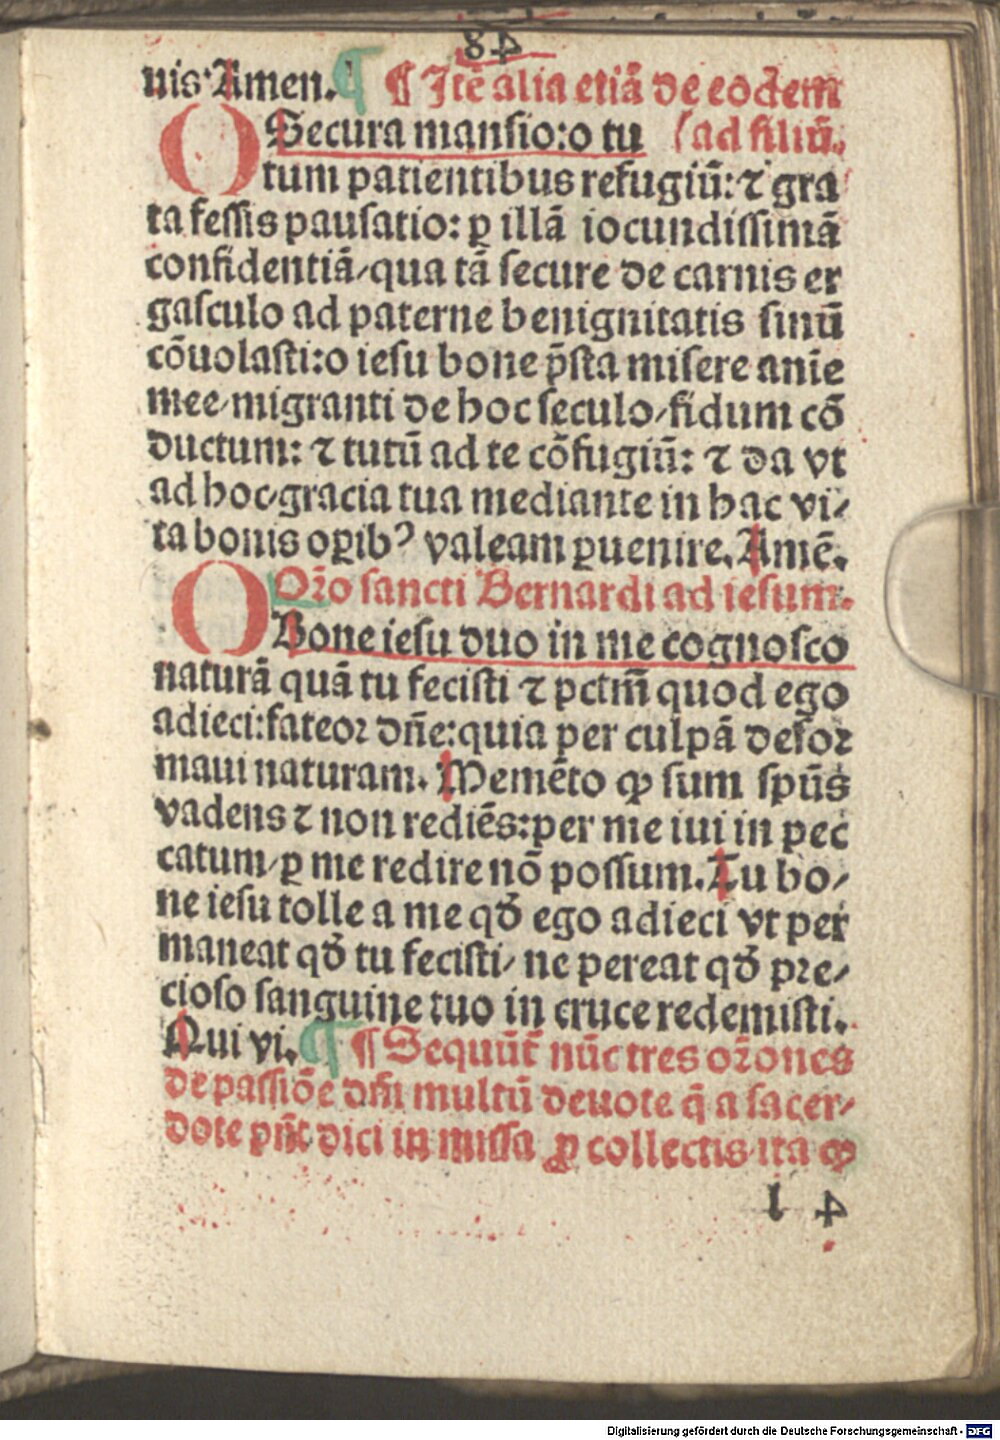 84
nis Amen. ¶ ¶ Itē alia etiā de eodem
O Secura mansio: o tu (ad filiū.
tum patientibus refugiū: ⁊ gra
ta fessis pausatio: ꝑ illā iocundissimā
confidentiā/ qua tā secure de carnis er
gasculo ad paterne benignitatis sinū
cōuolasti: o iesu bone p̄sta misere anīe
mee/ migranti de hoc seculo/ fidum cō
ductum: ⁊ tutū ad te cōfugiū: ⁊ da vt
ad hoc/ gracia tua mediante in hac vi/
ta bonis oꝑibꝰ valeam ꝑuenire. Amē.
Or̄o sancti Bernardi ad iesum.
O Bone iesu duo in me cognosco
naturā quā tu fecisti ⁊ pctm̄ quod ego
adieci: fateor dn̄e: quia per culpā defor
maui naturam. Memēto ꝙ sum spūs
vadens ⁊ non rediēs: per me iui in pec
catum/ ꝑ me redire nō possum. Tu bo/
ne iesu tolle a me qđ ego adieci vt per
maneat qđ tu fecisti/ ne pereat qđ pre/
cioso sanguine tuo in cruce redemisti.
Qui vi. ¶ ¶ Sequūt̄ nūc tres or̄ones
de passiōe dn̄i multū deuote q̄ a sacer/
dote pn̄t dici in missa ꝓ collectis/ ita ꝙ
l 4
Digitalisierung gefördert durch die Deutsche Forschungsgemeinschaft - DFG